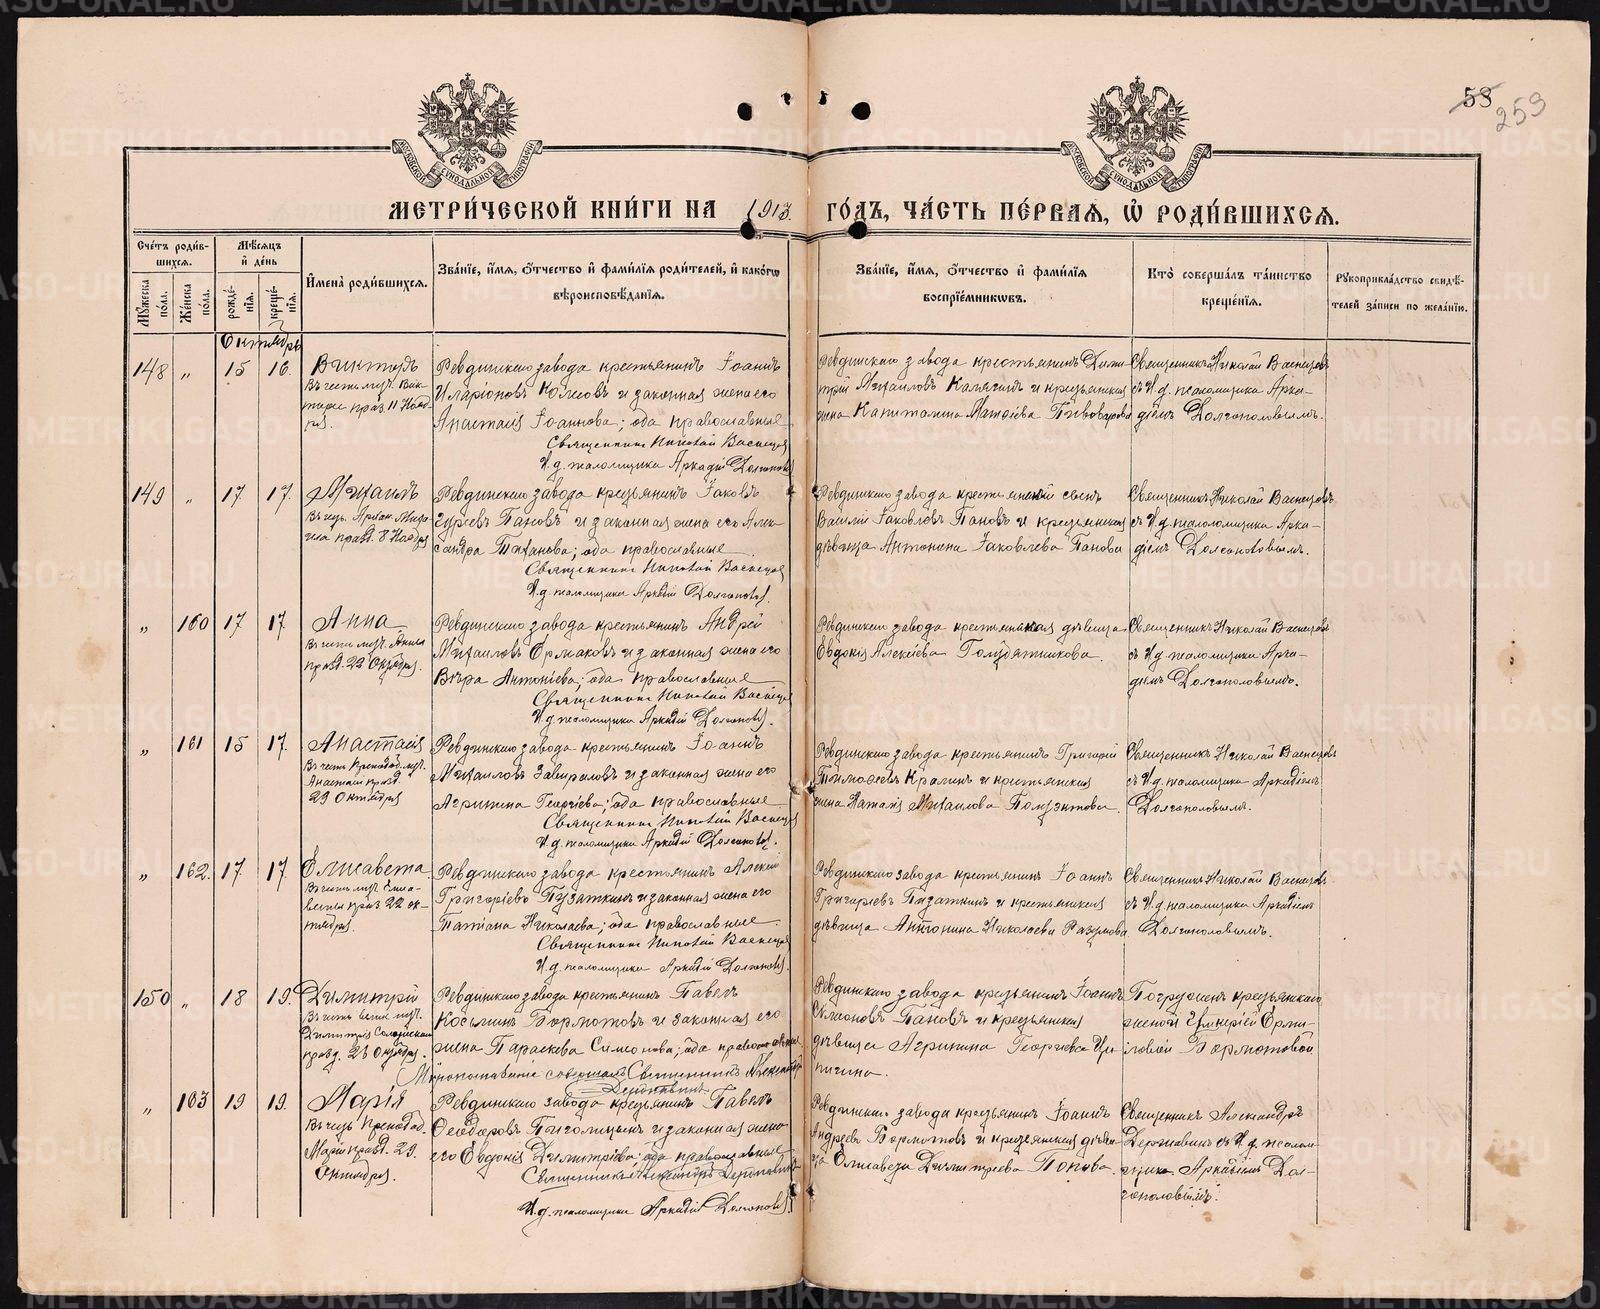 58 259
МОСКОВСКОЙ СѴНОДАЛЬНОЙ ТИПОГРАФІИ
МОСКОВСКОЙ СѴНОДАЛЬНОЙ ТИПОГРАФІИ
МЕТРИ́ЧЕСКОЙ КНИ́ГИ НА 1913. ГО́ДЪ, ЧА́СТЬ ПЕ́РВАЯ, Ѡ҆ РОДИ́ВШИХСЯ.
Счетъ родившихся.
Мужеска пола.
Женска пола.
Мѣсяцъ и день
рожденія.
крещенія.
Имена родившихся.
Званіе, имя, отчество и фамилія родителей, и какогѡ
вѣроисповѣданія.
Званіе, имя, отчество и фамилія
воспріемникѡвъ.
Кто совершалъ таинство
крещенія.
Рукоприкладство свидѣтелей записи по желанію.
Октябрь
148 " 15 16. Викторъ
Въ честь муч. Виктора празд. 11 Ноября.
Ревдинскаго завода крестьянинъ Іоаннъ
Иларіоновъ и законная жена его
Анастасія Іоаннова; оба православные
Священникъ Николай Васнецовъ
И.д. псаломщика Аркадій Долгополовъ
Ревдинскаго завода крестьянинъ Димитрій Михаиловъ и крестьянская
жена Капитолина Матѳіева Пивоварова
Священникъ Николай Васнецовъ
съ И.д. псаломщика Аркадіемъ Долгополовымъ.
149 " 17 17. Михаилъ
Въ честь Архан. Михаила празд. 8 Ноября
Ревдинскаго завода крестьянинъ Іаковъ
Гурьевъ Пановъ и законная жена его Александра Титанова; оба православные
Священникъ Николай Васнецовъ
И.д. псаломщика Аркадій Долгополовъ.
Ревдинскаго завода крестьянскій сынъ
Василій Іаковлевъ Пановъ и крестьянская
дѣвица Антонина Іаковлева Панова
Священникъ Николай Васнецовъ
съ И.д. псаломщика Аркадіемъ Долгополовымъ.
" 160 17 17 Анна
Въ честь муч. Анны
празд. 22 Октября.
Ревдинскаго завода крестьянинъ Андрей
Михаиловъ Ермаковъ и законная жена его
Вѣра Антоніева; оба православные
Священникъ Николай Васнецовъ
И.д. псаломщика Аркадій Долгополовъ.
Ревдинскаго завода крестьянская дѣвица
Евдокія Алексіева
Священникъ Николай Васнецовъ
съ И.д. псаломщика Аркадіемъ Долгополовымъ.
" 161 15 17. Анастасія
Въ честь Преподоб. муч.
Анастасіи празд.
29 Октября
Ревдинскаго завода крестьянинъ Іоаннъ
Михаиловъ Завираловъ и законная жена его
Агрипина Георгіева; оба православные
Священникъ Николай Васнецовъ
И.д. псаломщика Аркадій Долгополовъ.
Ревдинскаго завода крестьянинъ Григорій
Тимоѳеевъ и крестьянская
жена Наталія Михаилова
Священникъ Николай Васнецовъ
съ И.д. псаломщика Аркадіемъ
Долгополовымъ.
" 162. 17. 17 Елисавета
Въ честь муч. Елисаветы празд. 22 октября.
Ревдинскаго завода крестьянинъ Алексій
Григоріевъ Пузаткинъ и законная жена его
Татіана Николаева; оба православные
Священникъ Николай Васнецовъ
И.д. псаломщика Аркадій Долгополовъ.
Ревдинскаго завода крестьянинъ Іоаннъ
Григоріевъ Пузаткинъ и крестьянская
дѣвица Антонина Николаева Разумова
Священникъ Николай Васнецовъ
съ И.д. псаломщика Аркадіемъ
Долгополовымъ.
150 " 18 19. Димитрій
Въ честь велик. муч.
Димитрія Солунскаго
празд. 26 Октября.
Ревдинскаго завода крестьянинъ Павелъ
Косьминъ Бормотовъ и законная его
жена Параскева Симеонова; оба православные
Мѵропомазаніе совершалъ Священникъ Александръ
Державинъ
Ревдинскаго завода крестьянинъ Іоаннъ
Пановъ и крестьянская
дѣвица Агрипина Георгіева
Погруженъ крестьянскою
женой Бормотовой
" 163 19 19. Марія
Въ честь Преподоб.
Маріи празд. 29.
Октября.
Ревдинскаго завода крестьянинъ Павелъ
Ѳеодоровъ и законная жена
его Евдокія Димитріева; оба православные
Священникъ Александръ Державинъ
И.д. псаломщика Аркадій Долгополовъ.
Ревдинскаго завода крестьянинъ Іоаннъ
Андреевъ Бормотовъ и крестьянская дѣвица Елисавета Димитріева Попова.
Священникъ Александръ
Державинъ съ И.д. псаломщика Аркадіемъ Долгополовымъ.
METRIKI.GASO-URAL.RU